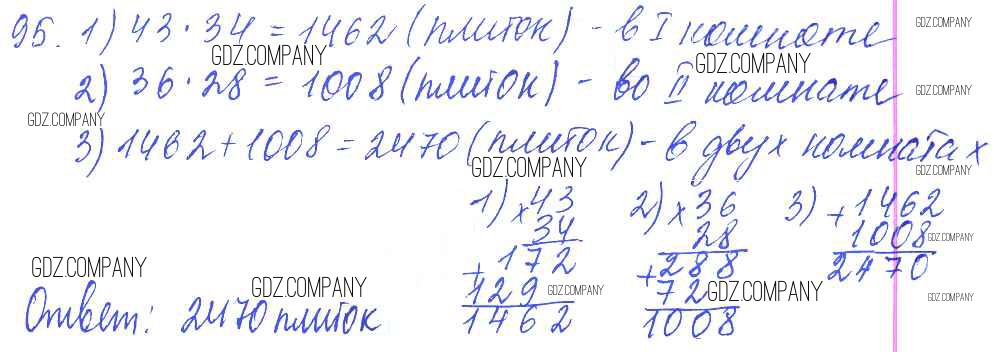 95. 1) 43 · 34 = 1462 (плиток) - в I комнате
GDZ.COMPANY
GDZ.COMPANY GDZ.COMPANY
2) 36 · 28 = 1008 (плиток) - во II комнате
GDZ.COMPANY
GDZ.COMPANY
3) 1462 + 1008 = 2470 (плиток) - в двух комнатах
GDZ.COMPANY GDZ.COMPANY
1) × 43 2) × 36 3) + 1462
34 28 1008
GDZ.COMPANY
+ 172 + 288 2470
GDZ.COMPANY
129 72
GDZ.COMPANY GDZ.COMPANY GDZ.COMPANY GDZ.COMPANY
1462 1008
Ответ: 2470 плиток